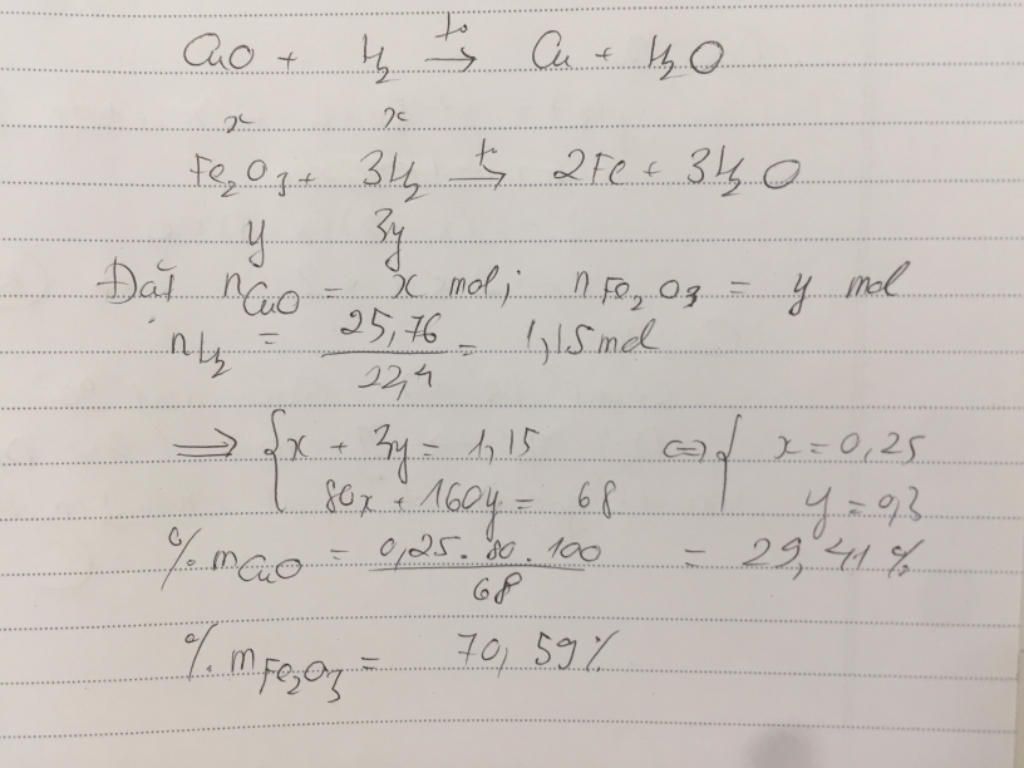 CuO + H₂ →(t°) Cu + H₂O
x x
Fe₂O₃ + 3H₂ →(t°) 2Fe + 3H₂O
y 3y
Đặt nCuO = x mol; nFe₂O₃ = y mol
nH₂ = 25,76 / 22,4 = 1,15 mol
⇒ { x + 3y = 1,15 ⇔ { x = 0,25
80x + 160y = 68 y = 0,3
% mCuO = 0,25 . 80 . 100 / 68 = 29,41 %
% mFe₂O₃ = 70,59 %